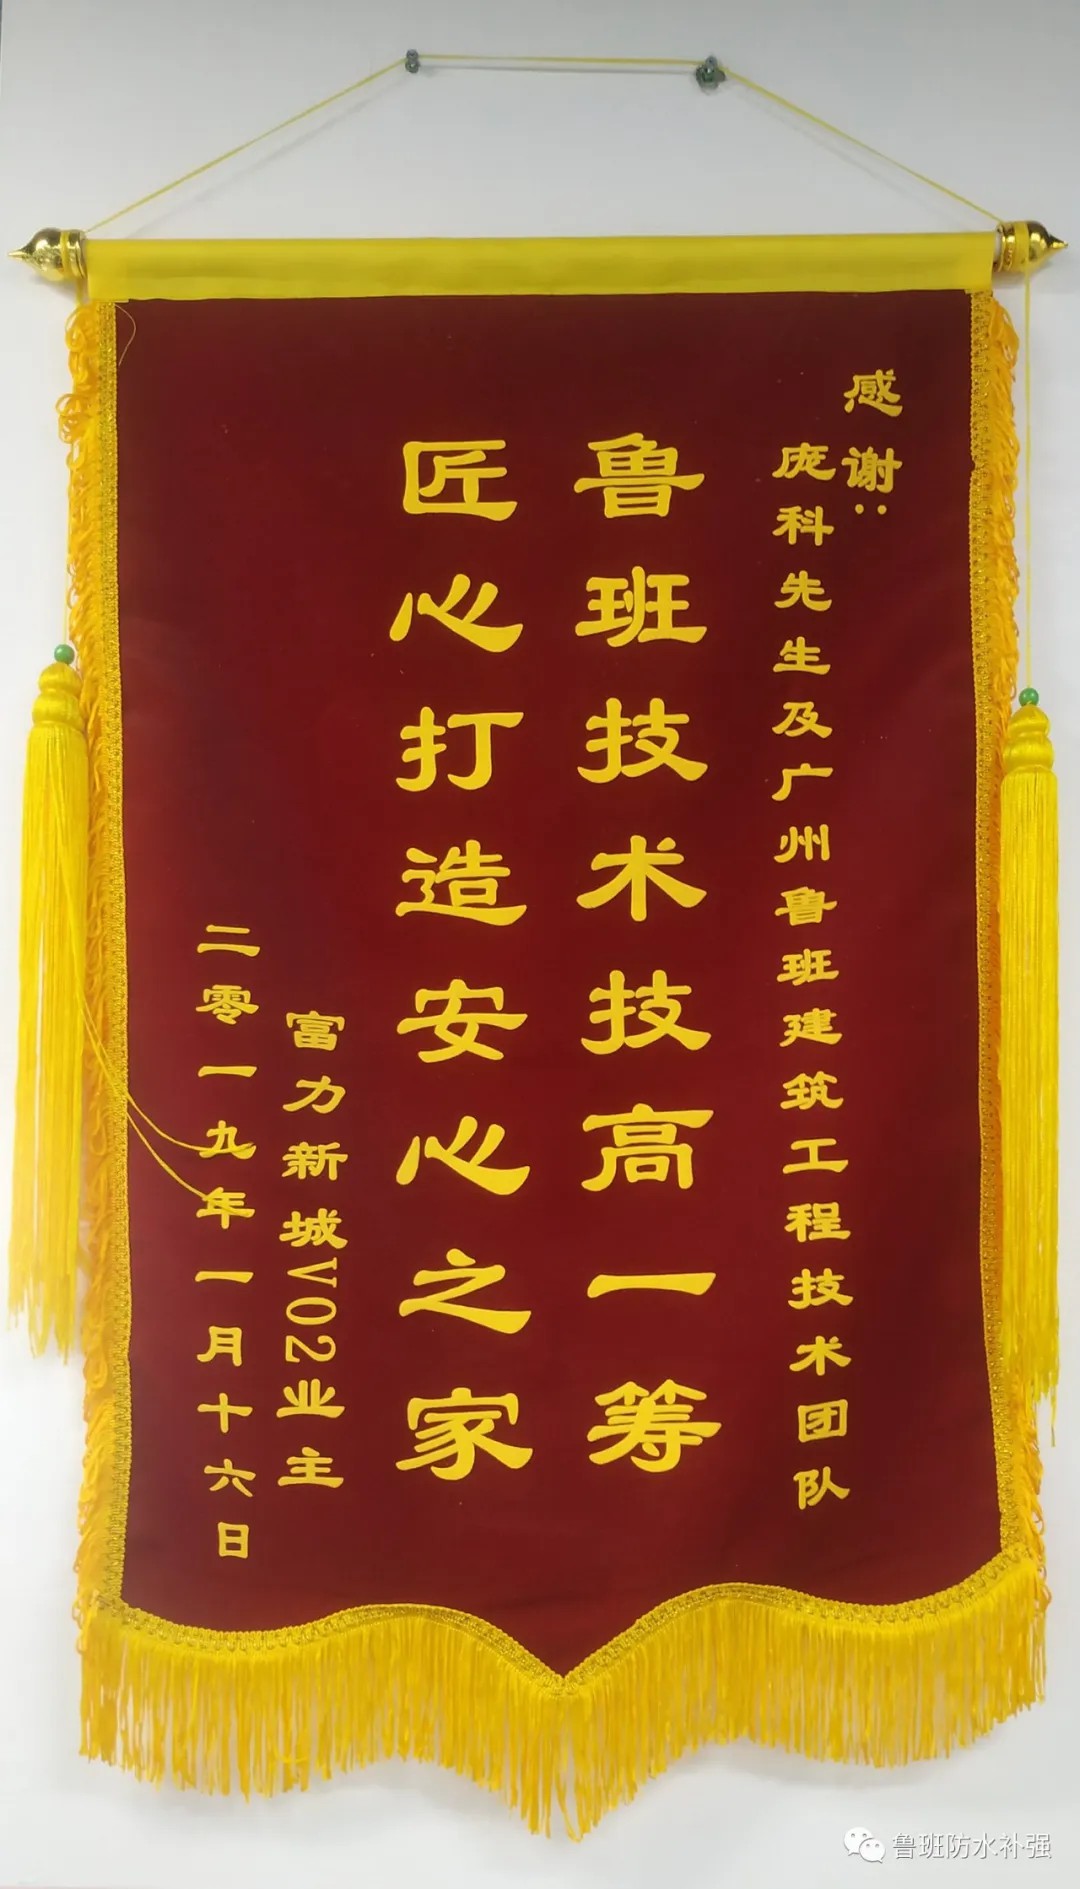 感谢:
庞科先生及广州鲁班建筑工程技术团队
鲁班技术技高一筹
匠心打造安心之家
富力新城V02业主
二零一九年一月十六日
鲁班防水补强